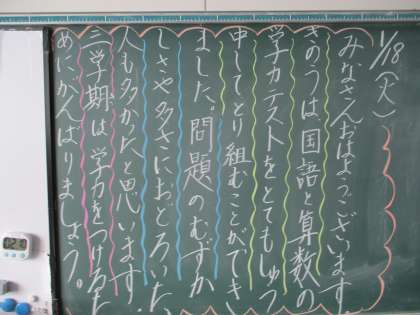 1/18(火)
みなさんおはようございます。
きのうは国語と算数の
学力テストをとてもしゅう
中してとり組むことができ
ました。問題のむずか
しさや多さにおどろいた
人も多かったと思います。
三学期は学力をつけるた
めにがんばりましょう。